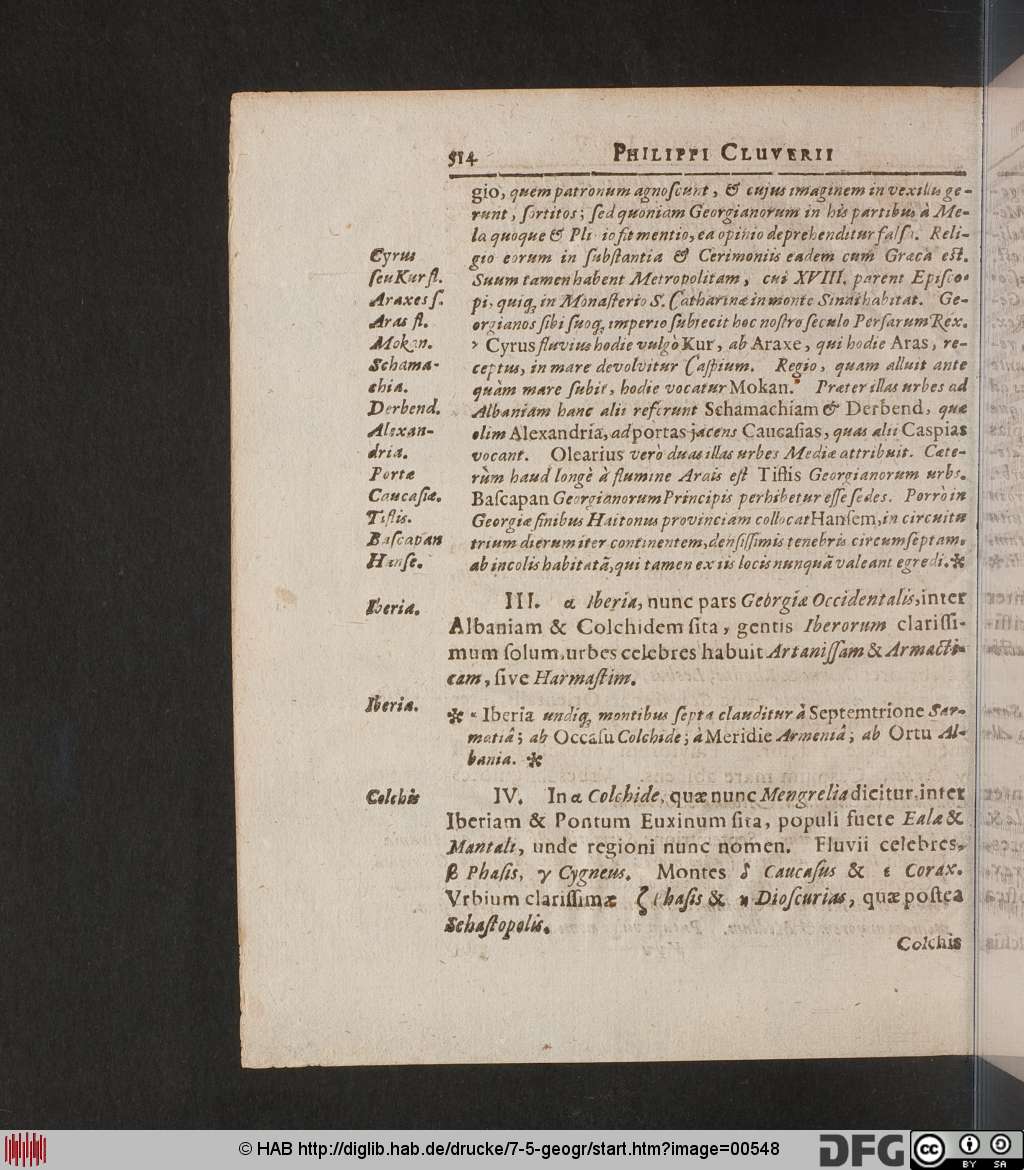 514 PHILIPPI CLUVERII
gio, quem patronum agnoſcunt, & cujus imaginem in vexillis ge-
runt, ſortitos; ſed quoniam Georgianorum in his partibus à Me-
la quoque & Pli io fit mentio, ea opinio deprehenditur falſa. Reli-
gio eorum in ſubſtantia & Cerimoniis eadem cum Græca eſt.
Suum tamen habent Metropolitam, cui XVIII. parent Epiſco-
pi, quiq; in Monaſterio S. Catharinæ in monte Sinai habitat. Ge-
orgianos ſibi ſuoq; imperio ſubjecit hoc noſtro ſeculo Perſarum Rex.
Cyrus fluvius hodie vulgò Kur, ab Araxe, qui hodie Aras, re-
ceptus, in mare devolvitur Caſpium. Regio, quam alluit ante
quàm mare ſubit, hodie vocatur Mokan. Præter illas urbes ad
Albaniam hanc alii referunt Schamachiam & Derbend, quæ
olim Alexandria, ad portas jacens Caucaſias, quas alii Caspias
vocant. Olearius vero duas illas urbes Mediæ attribuit. Cæte-
rùm haud longè à flumine Arais eſt Tiflis Georgianorum urbs.
Baſcapan Georgianorum Principis perhibetur eſſe ſedes. Porrò in
Georgiæ finibus Haitonus provinciam collocat Hanſem, in circuitu
trium dierum iter continentem, denſiſſimis tenebris circumſeptam,
ab incolis habitatã, qui tamen ex iis locis nunquã valeant egredi. ✲
Cyrus
ſeu Kur fl.
Araxes ſ.
Aras fl.
Mokan.
Schama-
chia.
Derbend.
Alexan-
dria.
Portæ
Caucaſiæ.
Tiflis.
Baſcapan
Hanſe.
Iberia.
III. α Iberia, nunc pars Georgiæ Occidentalis, inter
Albaniam & Colchidem ſita, gentis Iberorum clariſſi-
mum ſolum, urbes celebres habuit Artaniſſam & Armacti-
cam, ſive Harmaſtim.
Iberia.
✲ α Iberia undiq; montibus ſepta clauditur à Septemtrione Sar-
matiâ; ab Occaſu Colchide; à Meridie Armeniâ; ab Ortu Al-
bania. ✲
Colchis
IV. In α Colchide, quæ nunc Mengrelia dicitur, inter
Iberiam & Pontum Euxinum ſita, populi fuere Eala &
Mantali, unde regioni nunc nomen. Fluvii celebres,
β Phaſis, γ Cygneus. Montes δ Caucaſus & ε Corax.
Vrbium clariſſimæ ζ Phaſis & η Dioſcurias, quæ poſtea
Sebaſtopolis.
Colchis
© HAB http://diglib.hab.de/drucke/7-5-geogr/start.htm?image=00548
DFG
cc BY SA